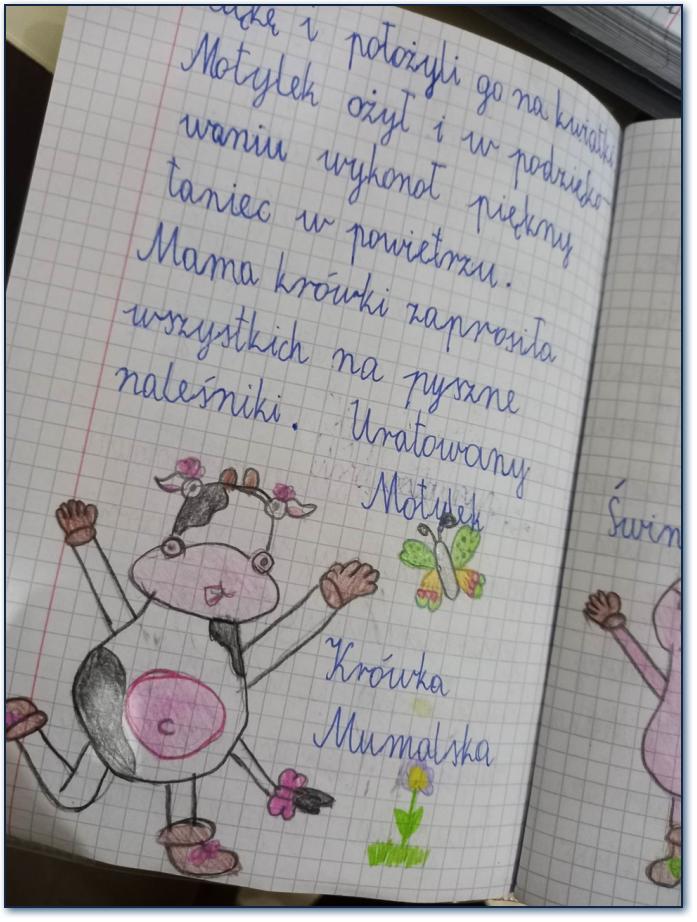 łąkę i położyli go na kwiatki
Motylek ożył i w podzięko-
waniu wykonał piękny
taniec w powietrzu.
Mama krówki zaprosiła
wszystkich na pyszne
naleśniki. Uratowany
Motylek
Krówka
Mumalska
Świn